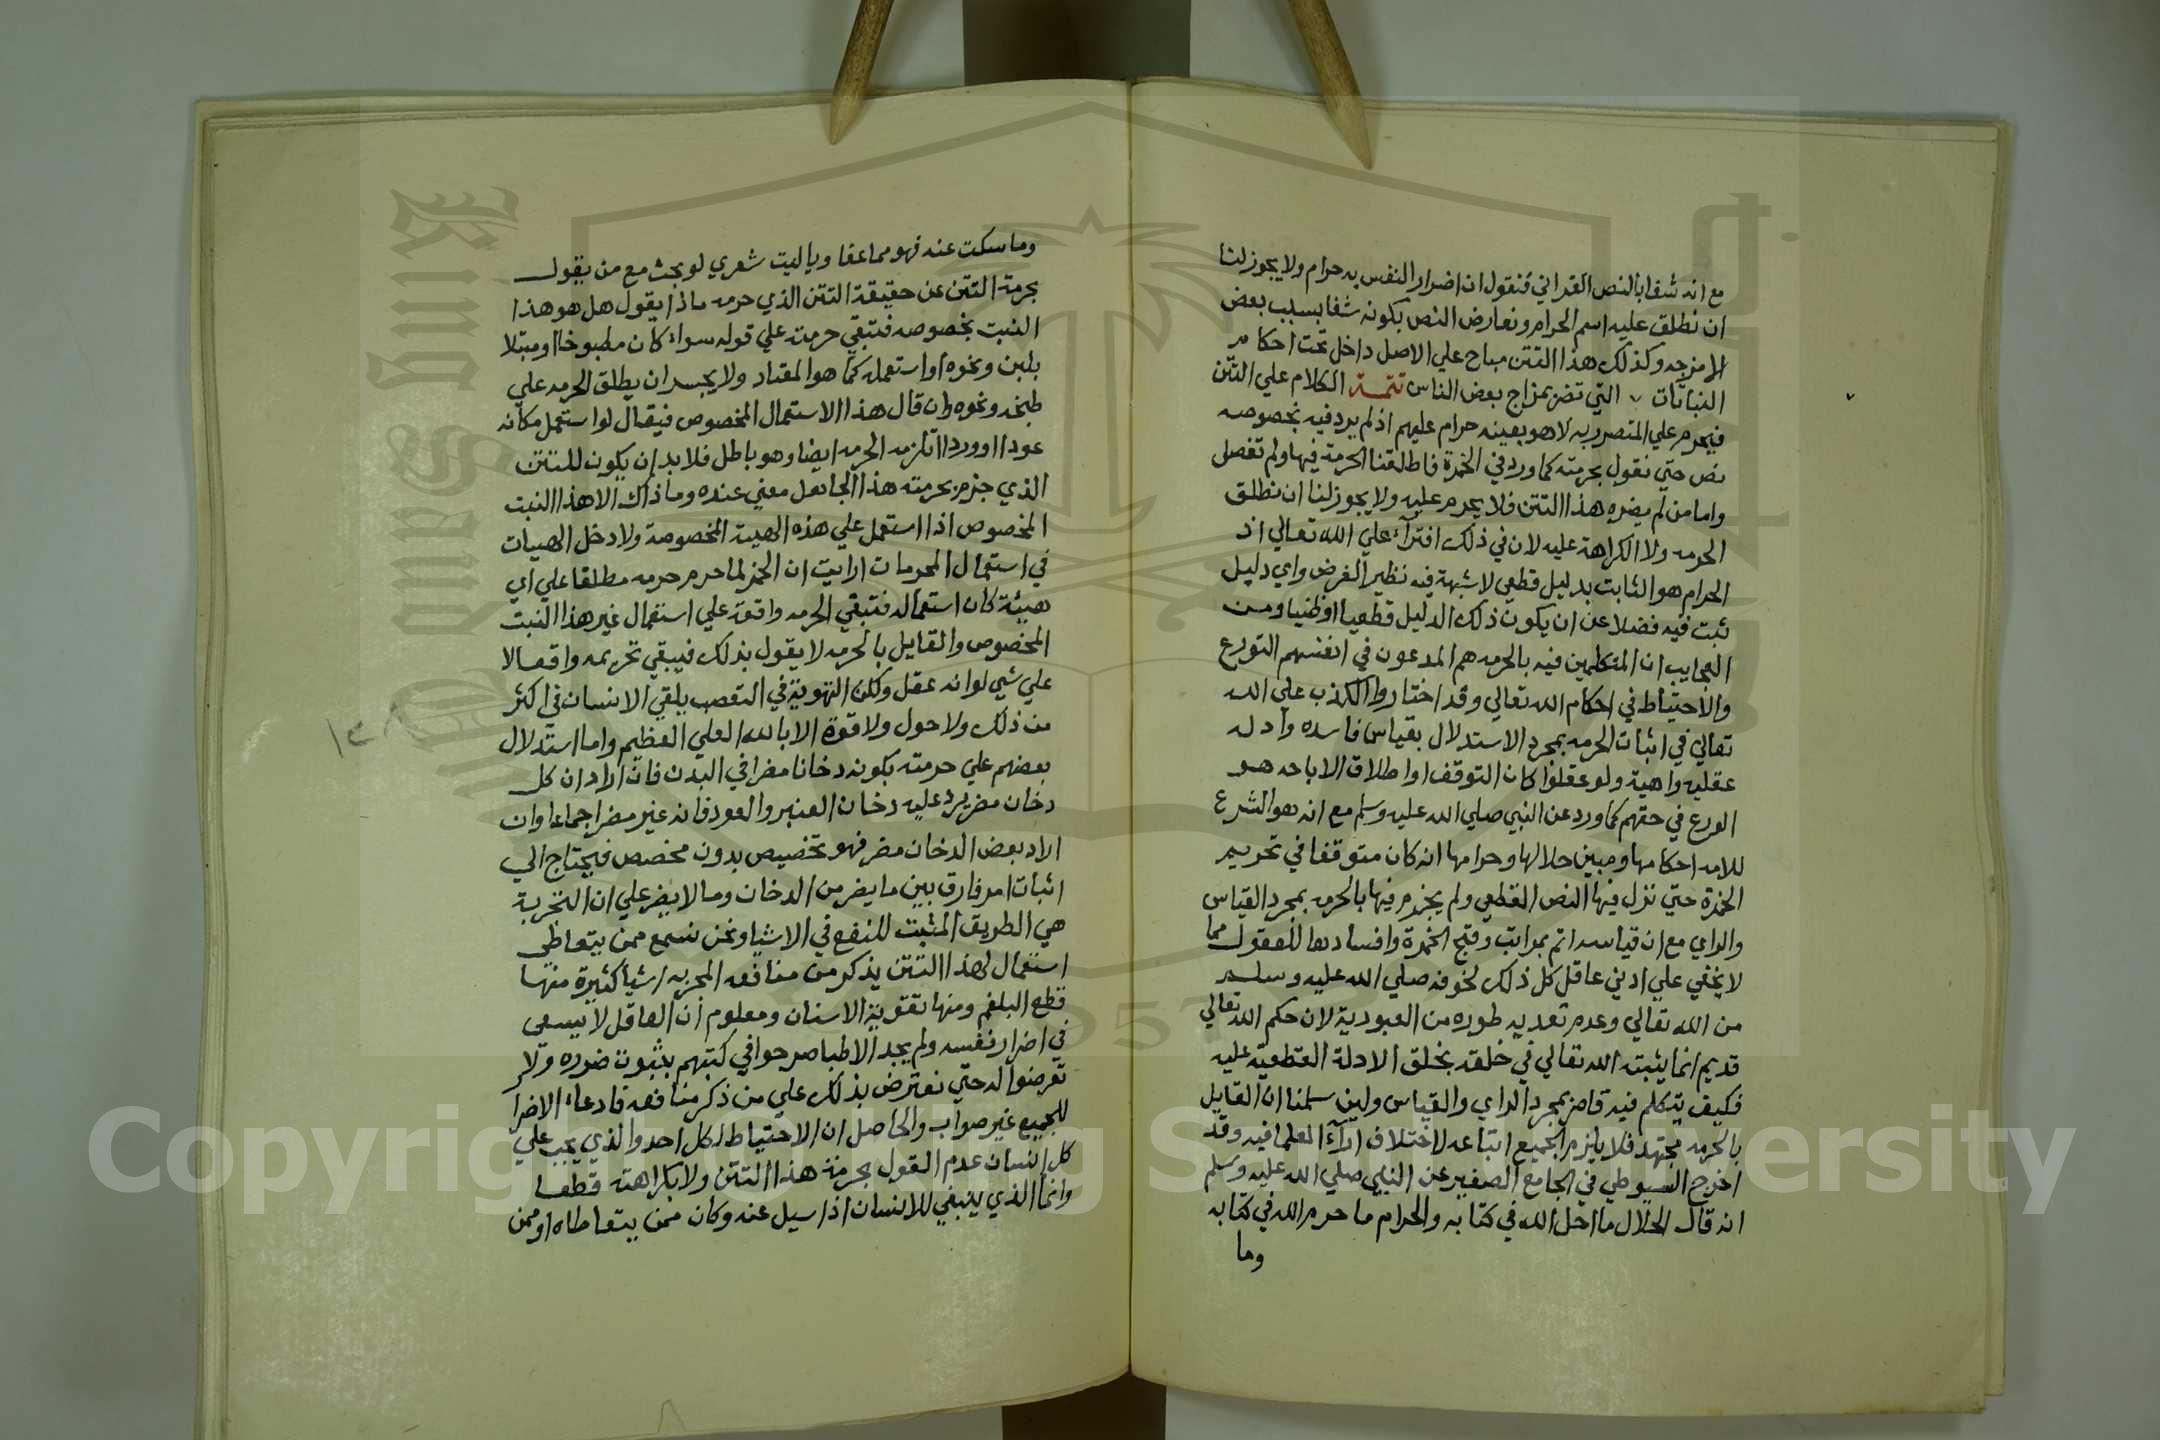 مع انه شفا بالنص القراني فنقول ان اضرار النفس به حرام ولا يجوز لنا
ان نطلق عليه اسم الحرام ونعارض النص بكونه شفا بسبب بعض
الامزجه وكذلك هذا التتن مباح علي الاصل داخل تحت احكام
النباتات ٧ التي تضر بمزاج بعض الناس تتمة الكلام علي التتن
فيحرم علي المتضرر به لا هو بعينه حرام عليهم اذ لم يرد فيه بخصوصه
نص حتي نقول بحرمته كما ورد في الخمرة فاطلقنا الحرمة فيها ولم تفصل
واما من لم يضره هذا التتن فلا يحرم عليه ولا يجوز لنا ان نطلق
الحرمه ولا الكراهة عليه لان في ذلك افترآء علي الله تعالي اذ
الحرام هو الثابت بدليل قطعي لا شبهة فيه نظير الفرض واي دليل
ثبت فيه فضلا عن ان يكون ذلك الدليل قطعيا او ظنيا ومن
العجايب ان المتكلمين فيه بالحرمه هم المدعون في انفسهم التورع
والاحتياط في احكام الله تعالي وقد اختاروا الكذب علي الله
تعالي في اثبات الحرمه بمجرد الاستدلال بقياس فاسده وادله
عقليه واهية ولو عقلوا كان التوقف او اطلاق الاباحه هو
الورع في حقهم كما ورد عن النبي صلي الله عليه وسلم مع انه هو الشرع
للامه احكامها ومبين حلالها وحرامها انه كان متوقفا في تحريم
الخمرة حتي نزل فيها النص القطعي ولم يجزم فيها بالحرمه بمجرد القياس
والراي مع ان قياسه اتم بمراتب وقبح الخمرة وافسادها للعقول مما
لا يخفي علي ادني عاقل كل ذلك لخوفه صلي الله عليه وسلم
من الله تعالي وعدم تعديه طوره من العبودية لان حكم الله تعالي
قديم انما يثبته الله تعالي في خلقه بخلق الادلة القطعية عليه
فكيف يتكلم فيه قاصر بمجرد الراي والقياس ولين سلمنا ان القايل
بالحرمه مجتهد فلا يلزم الجميع اتباعه لاختلاف ارآء العلما فيه وقد
اخرج السيوطي في الجامع الصغير عن النبي صلي الله عليه وسلم
انه قال الحلال ما احل الله في كتابه والحرام ما حرم الله في كتابه
وما
وما سكت عنه فهو مما عفا ويا ليت شعري لو بحث مع من يقول
بحرمة التتن عن حقيقة التتن الذي حرمه ماذا يقول هل هو هذا
النبت بخصوصه فتبقي حرمته علي قوله سواء كان مطبوخا او مبتلا
بلبن ونحوه او استعمله كما هو المعتاد ولا يجسر ان يطلق الحرمه علي
طبخه ونحوه وان قال هذا الاستعمال المخصوص فيقال لو استعمل مكانه
عودا او وردا تلزمه الحرمه ايضا وهو باطل فلا بد ان يكون للتتن
الذي جزم بحرمته هذا الجاهل معني عنده وما ذاك الا هذا النبت
المخصوص اذا استعمل علي هذه الهيية المخصوصة ولا دخل الهييات
في استعمال المحرمات ارايت ان الخمر لما حرم حرمه مطلقا علي اي
هيئة كان استعماله فتبقي الحرمه واقعة علي استعمال غير هذا النبت
المخصوص والقايل بالحرمه لا يقول بذلك فيبقي تحريمه واقعا لا
علي شيي لو انه عقل ولكن التهوية في التعصب يلقي الانسان في اكثر
من ذلك ولا حول ولا قوة الا بالله العلي العظيم واما استدلال
بعضهم علي حرمته بكونه دخانا مضرا في البدن فان اراد ان كل
دخان مضر يرد عليه دخان العنبر والعود فانه غير مضر اجماعا وان
اراد بعض الدخان مضر فهو تخصيص بدون مخصص فيحتاج الي
اثبات امر فارق بين ما يضر من الدخان وما لا يضر علي ان التجربة
هي الطريق المثبت للنفع في الاشيا ونحن نسمع ممن يتعاطي
استعمال لهذا التتن يذكر من منافعه المجربه اشيا كثيرة منها
قطع البلغم ومنها تقوية الاسنان ومعلوم ان العاقل لا يسعي
في اضرار نفسه ولم يجد الاطبا صرحوا في كتبهم بثبوت ضرره ولا
تعرضوا له حتي نعترض بذلك علي من ذكر منافعه فادعاء الاضرا
للجميع غير صواب والحاصل ان الاحتياط لكل احد والذي يجب علي
كل انسان عدم القول بحرمة هذا التتن ولا بكراهته قطعا
وانما الذي ينبغي للانسان اذا سيل عنه وكان ممن يتعاطاه او ممن
١٣٨
Copyright © King Saud University
King Saud University
1957